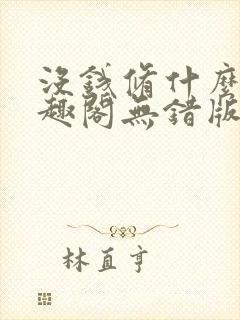 沒錢脩什麼
趣閣無錯版
林直亨